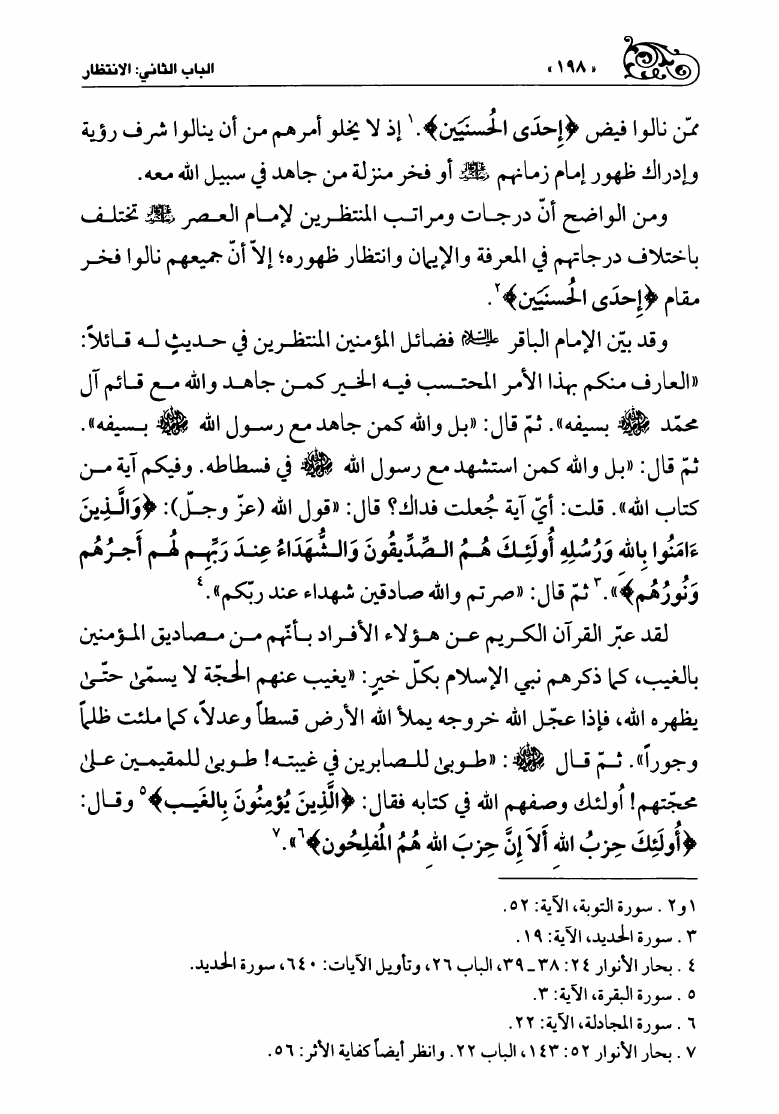 «١٩٨» الباب الثاني: الانتظار
ممّن نالوا فيض ﴿إِحدَى الْحُسنَيَين﴾.١ إذ لا يخلو أمرهم من أن ينالوا شرف رؤية
وإدراك ظهور إمام زمانهم أو فخر منزلة من جاهد في سبيل الله معه.
ومن الواضح أنّ درجات ومراتب المنتظرين لإمام العصر تختلف
باختلاف درجاتهم في المعرفة والإيمان وانتظار ظهوره؛ إلاّ أنّ جميعهم نالوا فخر
مقام ﴿إِحدَى الْحُسنَيَين﴾٢.
وقد بيّن الإمام الباقر عليه السلام فضائل المؤمنين المنتظرين في حديثٍ له قائلاً:
«العارف منكم بهذا الأمر المحتسب فيه الخير كمن جاهد والله مع قائم آل
محمّد ﷺ بسيفه». ثمّ قال: «بل والله كمن جاهد مع رسول الله ﷺ بسيفه».
ثمّ قال: «بل والله كمن استشهد مع رسول الله ﷺ في فسطاطه. وفيكم آية من
كتاب الله». قلت: أيّ آية جُعلت فداك؟ قال: «قول الله (عزّ وجلّ): ﴿وَالَّذِينَ
ءَامَنُوا بِاللهِ وَرُسُلِهِ أُولَئِكَ هُمُ الصِّدِّيقُونَ وَالشُّهَدَاءُ عِندَ رَبِّهِم لَهُم أَجرُهُم
وَنُورُهُم﴾».٣ ثمّ قال: «صرتم والله صادقين شهداء عند ربّكم».٤
لقد عبّر القرآن الكريم عن هؤلاء الأفراد بأنّهم من مصاديق المؤمنين
بالغيب، كما ذكرهم نبي الإسلام بكلّ خيرٍ: «يغيب عنهم الحجّة لا يسمّىٰ حتّىٰ
يظهره الله، فإذا عجّل الله خروجه يملأ الله الأرض قسطاً وعدلاً، كما ملئت ظلماً
وجوراً». ثمّ قال ﷺ: «طوبىٰ للصابرين في غيبته! طوبىٰ للمقيمين علىٰ
محجّتهم! أولئك وصفهم الله في كتابه فقال: ﴿الَّذِينَ يُؤمِنُونَ بِالغَيبِ﴾٥ وقال:
﴿أُولَئِكَ حِزبُ اللهِ أَلاَ إِنَّ حِزبَ اللهِ هُمُ الْمُفلِحُون﴾٦».٧
١و٢ . سورة التوبة، الآية: ٥٢.
٣ . سورة الحديد، الآية: ١٩.
٤ . بحار الأنوار ٢٤: ٣٨ ـ ٣٩، الباب ٢٦، وتأويل الآيات: ٦٤٠، سورة الحديد.
٥ . سورة البقرة، الآية: ٣.
٦ . سورة المجادلة، الآية: ٢٢.
٧ . بحار الأنوار ٥٢: ١٤٣، الباب ٢٢. وانظر أيضاً كفاية الأثر: ٥٦.